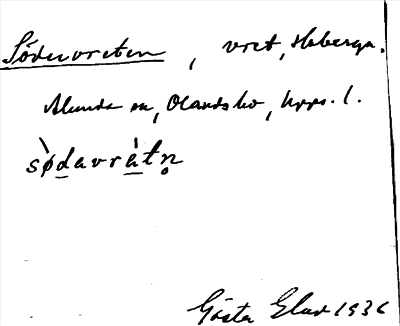 Södervreten, vret, Habergn.
Alunda sn, Olandshd, Upps. l.
sø̀davrátn̥
Gösta Elav 1936